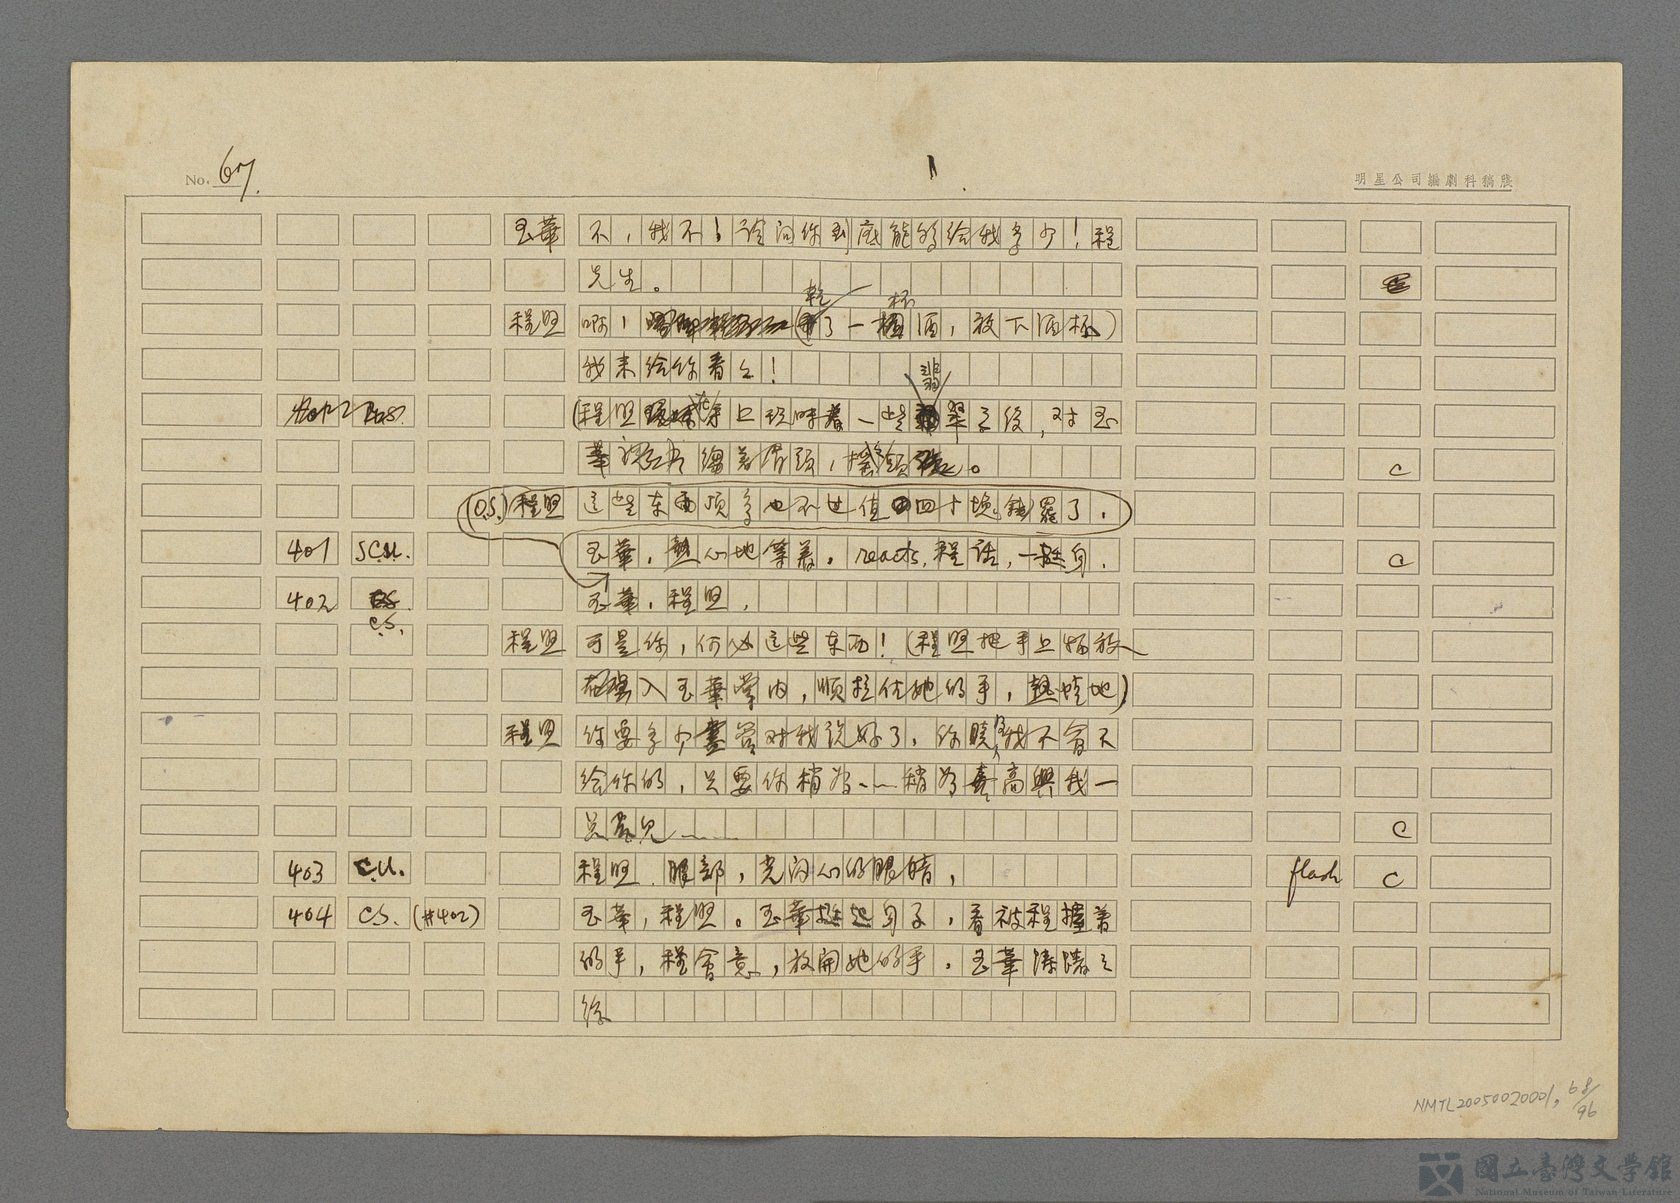 No. 67.
明星公司編劇科稿牋
玉華 不，我不！請问你到底能够给我多少！程
先生。
程明 啊，(乾了一杯酒，放下酒杯)
我来给你看々！
(程明在手上玩味着一些翡翠之後，对玉
華 皺着眉頭，搖頭。 C
(O.S.) 程明 这些东西顶多也不过值四十塊錢罷了，
401 S.C.U. 玉華，熱心地等着。reacts. 程话，一挺身， C
402 C.S. 玉華，程明，
程明 可是你，何必这些东西！(程明把手上 放
入玉華掌内，順 住她的手，熱情地)
程明 你要多少儘管对我说好了，你曉得我不會不
给你的，只要你稍为……稍为高興我一
点兒…… C
403 C.U. 程明，眼部，光闪々的眼睛， flash C
404 C.S. (#402) 玉華，程明。玉華挺起身子，看被程握着
的手，程會意，放開她的手，玉華
NMTL20050020001, 68/96
國立臺灣文學館
National Museum of Taiwan Literature